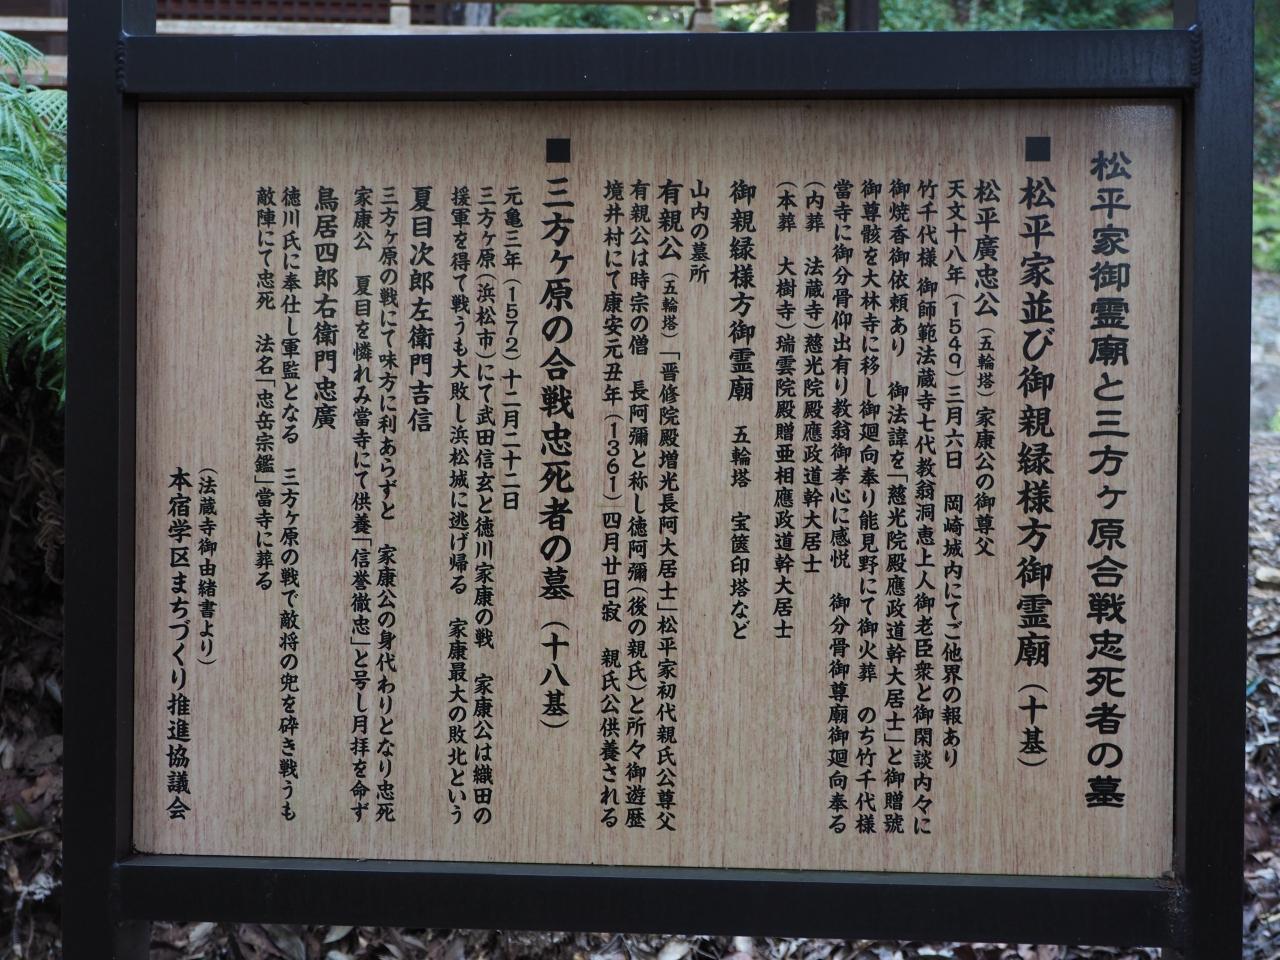 松平家御霊廟と三方ヶ原合戦忠死者の墓
■松平家並び御親縁様方御霊廟（十基）
松平廣忠公（五輪塔）家康公の御尊父
天文十八年（1549）三月六日 岡崎城内にてご他界の報あり
竹千代様 御師範法蔵寺七代教翁洞恵上人御老臣衆と御閑談内々に
御焼香御依頼あり 御法諱を「慈光院殿應政道幹大居士」と御贈號
御尊骸を大林寺に移し御廻向奉り能見野にて御火葬 のち竹千代様
當寺に御分骨仰出有り教翁御孝心に感悦 御分骨御尊廟御廻向奉る
（内葬 法蔵寺）慈光院殿應政道幹大居士
（本葬 大樹寺）瑞雲院殿贈亜相應政道幹大居士
御親縁様方御霊廟 五輪塔 宝篋印塔など
山内の墓所
有親公（五輪塔）「晋修院殿増光長阿大居士」松平家初代親氏公尊父
有親公は時宗の僧 長阿彌と称し徳阿彌（後の親氏）と所々御遊歴
境井村にて康安元丑年（1361）四月廿日寂 親氏公供養される
■三方ヶ原の合戦忠死者の墓（十八基）
元亀三年（1572）十二月二十二日
三方ヶ原（浜松市）にて武田信玄と徳川家康の戦 家康公は織田の
援軍を得て戦うも大敗し浜松城に逃げ帰る 家康最大の敗北という
夏目次郎左衛門吉信
三方ヶ原の戦にて味方に利あらずと 家康公の身代わりとなり忠死
家康公 夏目を憐れみ當寺にて供養「信誉徹忠」と号し月拝を命ず
鳥居四郎右衛門忠廣
徳川氏に奉仕し軍監となる 三方ヶ原の戦で敵将の兜を砕き戦うも
敵陣にて忠死 法名「忠岳宗鑑」當寺に葬る
（法蔵寺御由緒書より）
本宿学区まちづくり推進協議会